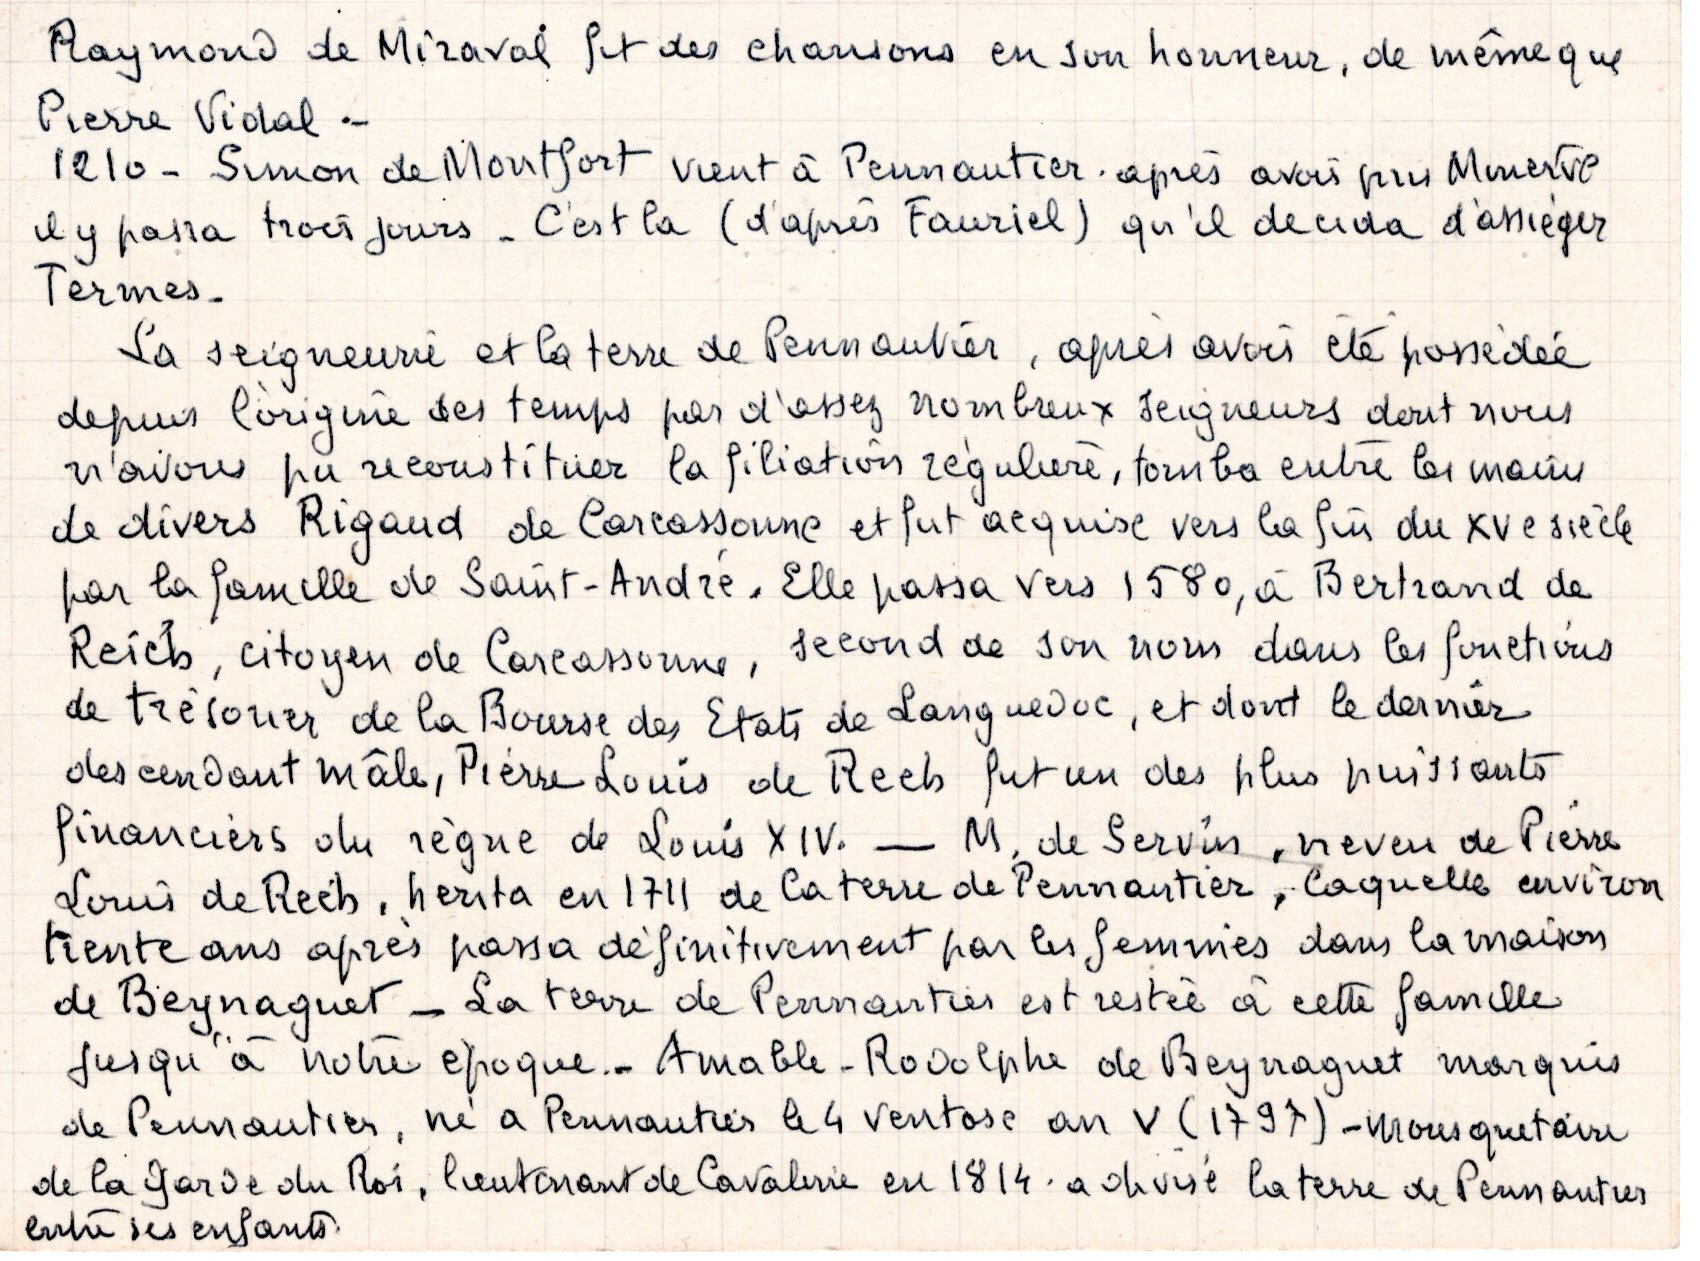 Raymond de Miraval fit des chansons en son honneur, de même que
Pierre Vidal .-
1210 - Simon de Montfort vient à Pennautier . après avoir pris Minerve
il y passa trois jours - C'est la (d'après Fauriel) qu'il decida d'assiéger
Termes -
La seigneurie et la terre de Pennautier, après avoir été possédée
depuis l'origine des temps par d'assez nombreux seigneurs dont nous
n'avons pu reconstituer la filiation régulière, tomba entre les mains
de divers Rigaud de Carcassonne et fut acquise vers la fin du XVe siècle
par la famille de Saint-André. Elle passa vers 1580, à Bertrand de
Reich, citoyen de Carcassonne, second de son nom dans les fonctions
de trésorier de la Bourse des Etats de Languedoc, et dont le dernier
descendant mâle, Pierre Louis de Reich fut un des plus puissants
financiers du règne de Louis XIV. — M. de Servin, neveu de Pierre
Louis de Reich, herita en 1711 de la terre de Pennautier, laquelle environ
trente ans après passa définitivement par les femmes dans la maison
de Beynaguet - La terre de Pennautier est restée à cette famille
jusqu'à notre epoque.- Amable-Rodolphe de Beynaguet marquis
de Pennautier, né a Pennautier le 4 ventose an V (1797) - mousquetaire
de la Garde du Roi, lieutenant de Cavalerie en 1814 . a divisé la terre de Pennautier
entre ses enfants.